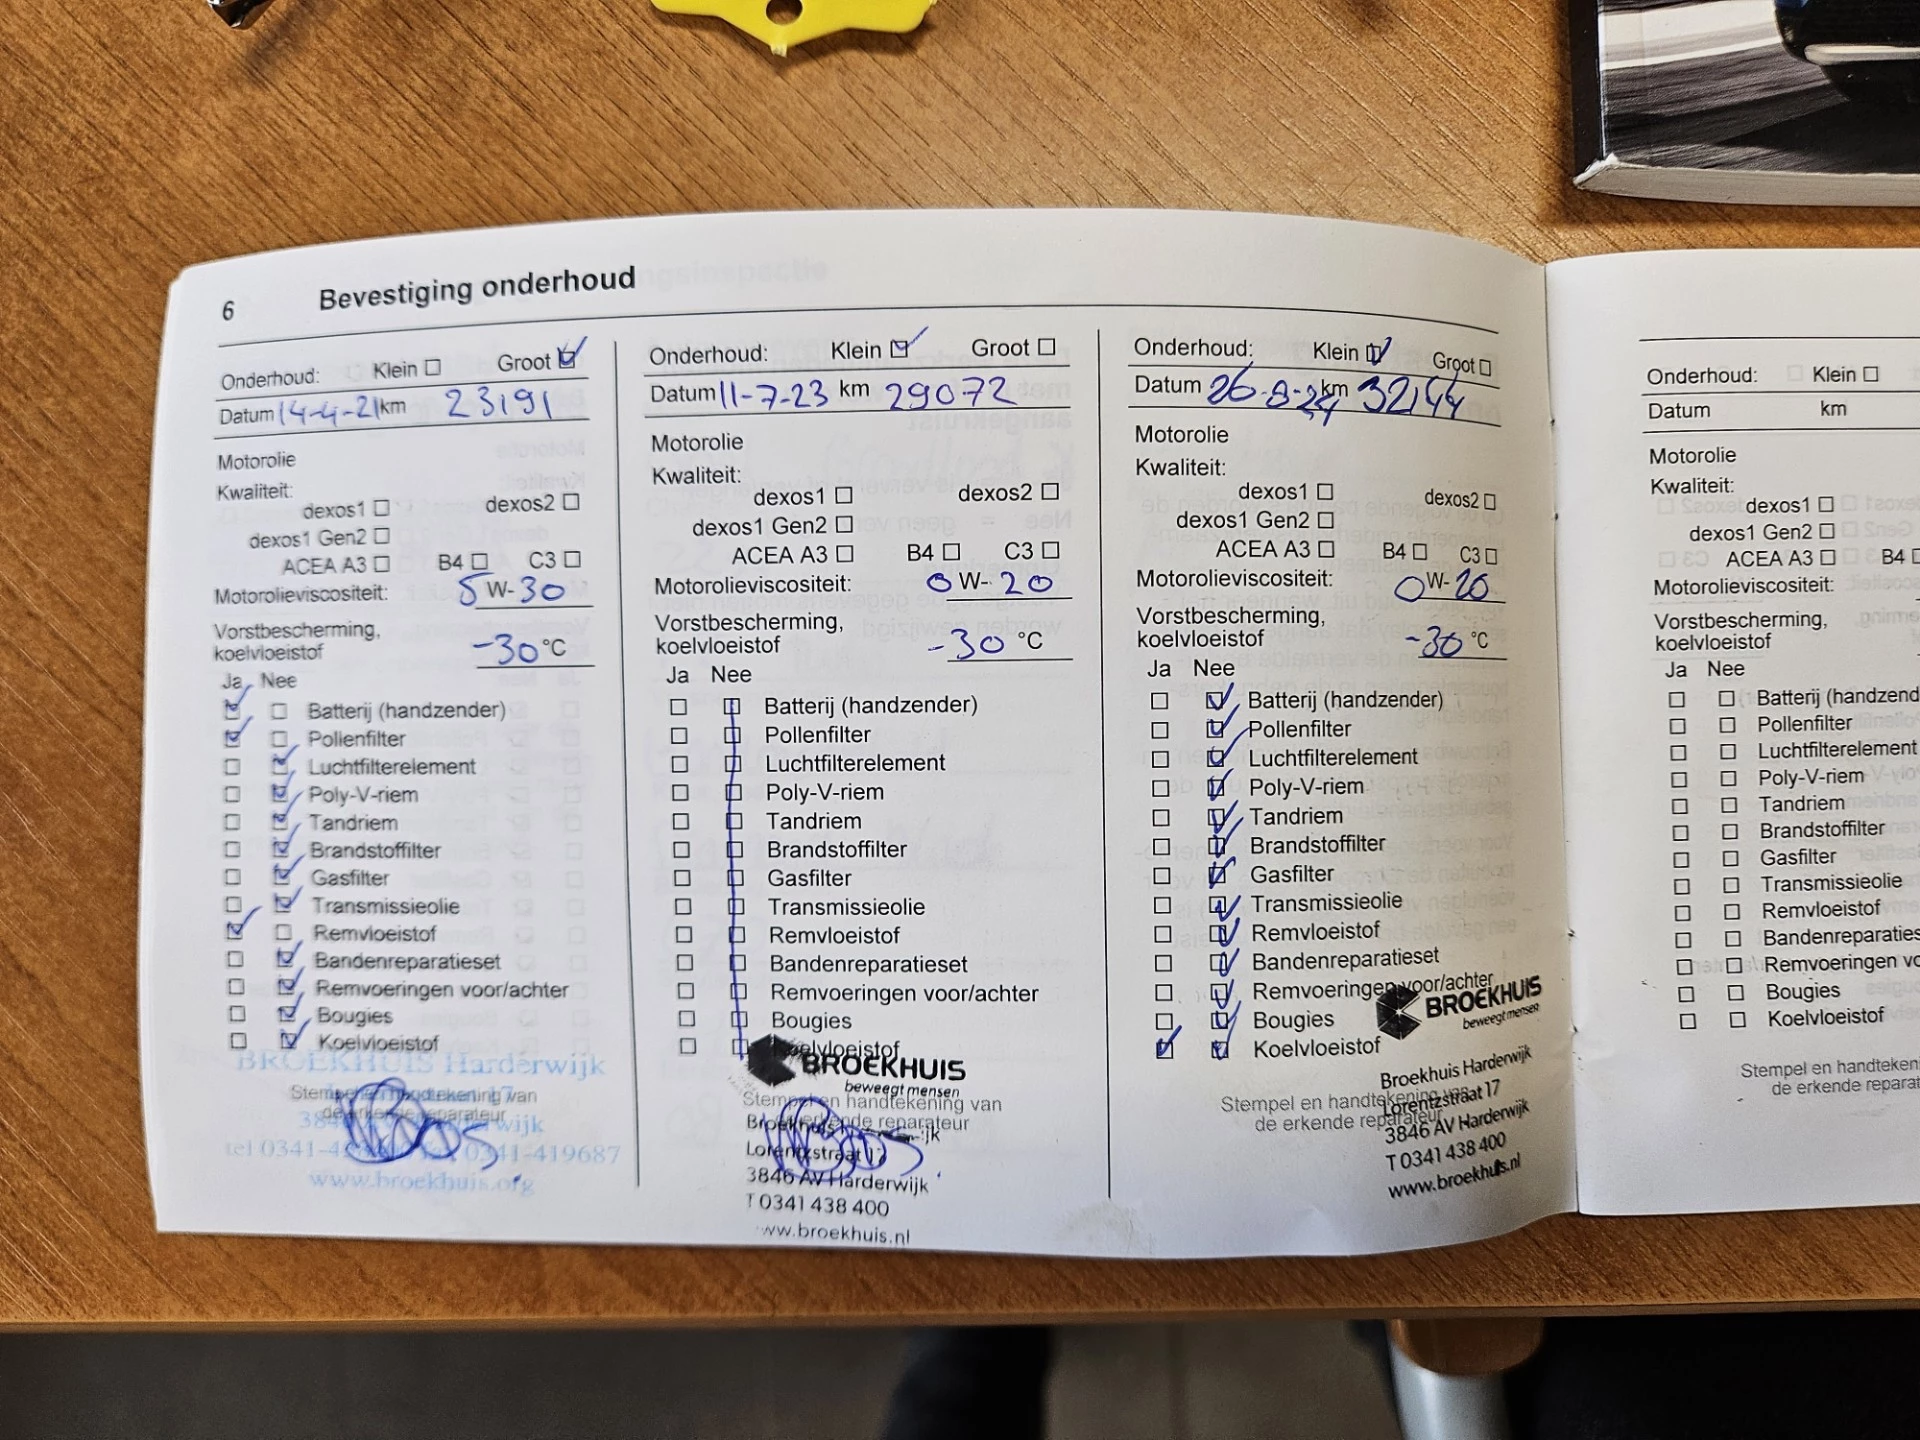 6 Bevestiging onderhoud
Onderhoud: Klein Groot
Datum 14-4-21 km 23191
Motorolie
Kwaliteit:
dexos1 dexos2
dexos1 Gen2
ACEA A3 B4 C3
Motorolieviscositeit: 5 W-30
Vorstbescherming,
koelvloeistof -30 °C
Ja Nee
Batterij (handzender)
Pollenfilter
Luchtfilterelement
Poly-V-riem
Tandriem
Brandstoffilter
Gasfilter
Transmissieolie
Remvloeistof
Bandenreparatieset
Remvoeringen voor/achter
Bougies
Koelvloeistof
BROEKHUIS Harderwijk
Stempel en handtekening van
de erkende reparateur
www.broekhuis.org
Onderhoud: Klein Groot
Datum 11-7-23 km 29072
Motorolie
Kwaliteit:
dexos1 dexos2
dexos1 Gen2
ACEA A3 B4 C3
Motorolieviscositeit: 0 W-20
Vorstbescherming,
koelvloeistof -30 °C
Ja Nee
Batterij (handzender)
Pollenfilter
Luchtfilterelement
Poly-V-riem
Tandriem
Brandstoffilter
Gasfilter
Transmissieolie
Remvloeistof
Bandenreparatieset
Remvoeringen voor/achter
Bougies
Koelvloeistof
BROEKHUIS
beweegt mensen
Stempel en handtekening van
de erkende reparateur
Lorentzstraat 17
3846 AV Harderwijk
T 0341 438 400
www.broekhuis.nl
Onderhoud: Klein Groot
Datum 26-8-24 km 32144
Motorolie
Kwaliteit:
dexos1 dexos2
dexos1 Gen2
ACEA A3 B4 C3
Motorolieviscositeit: 0W-20
Vorstbescherming,
koelvloeistof -30 °C
Ja Nee
Batterij (handzender)
Pollenfilter
Luchtfilterelement
Poly-V-riem
Tandriem
Brandstoffilter
Gasfilter
Transmissieolie
Remvloeistof
Bandenreparatieset
Remvoeringen voor/achter
Bougies
Koelvloeistof
BROEKHUIS
beweegt mensen
Stempel en handtekening van
de erkende reparateur
Broekhuis Harderwijk
Lorentzstraat 17
3846 AV Harderwijk
T 0341 438 400
www.broekhuis.nl
Onderhoud: Klein
Datum km
Motorolie
Kwaliteit:
dexos1
dexos1 Gen2
ACEA A3 B4
Motorolieviscositeit:
Vorstbescherming,
koelvloeistof
Ja Nee
Batterij (handzend
Pollenfilter
Luchtfilterelement
Poly-V-riem
Tandriem
Brandstoffilter
Gasfilter
Transmissieolie
Remvloeistof
Bandenreparaties
Remvoeringen vo
Bougies
Koelvloeistof
Stempel en handteken
de erkende reparat